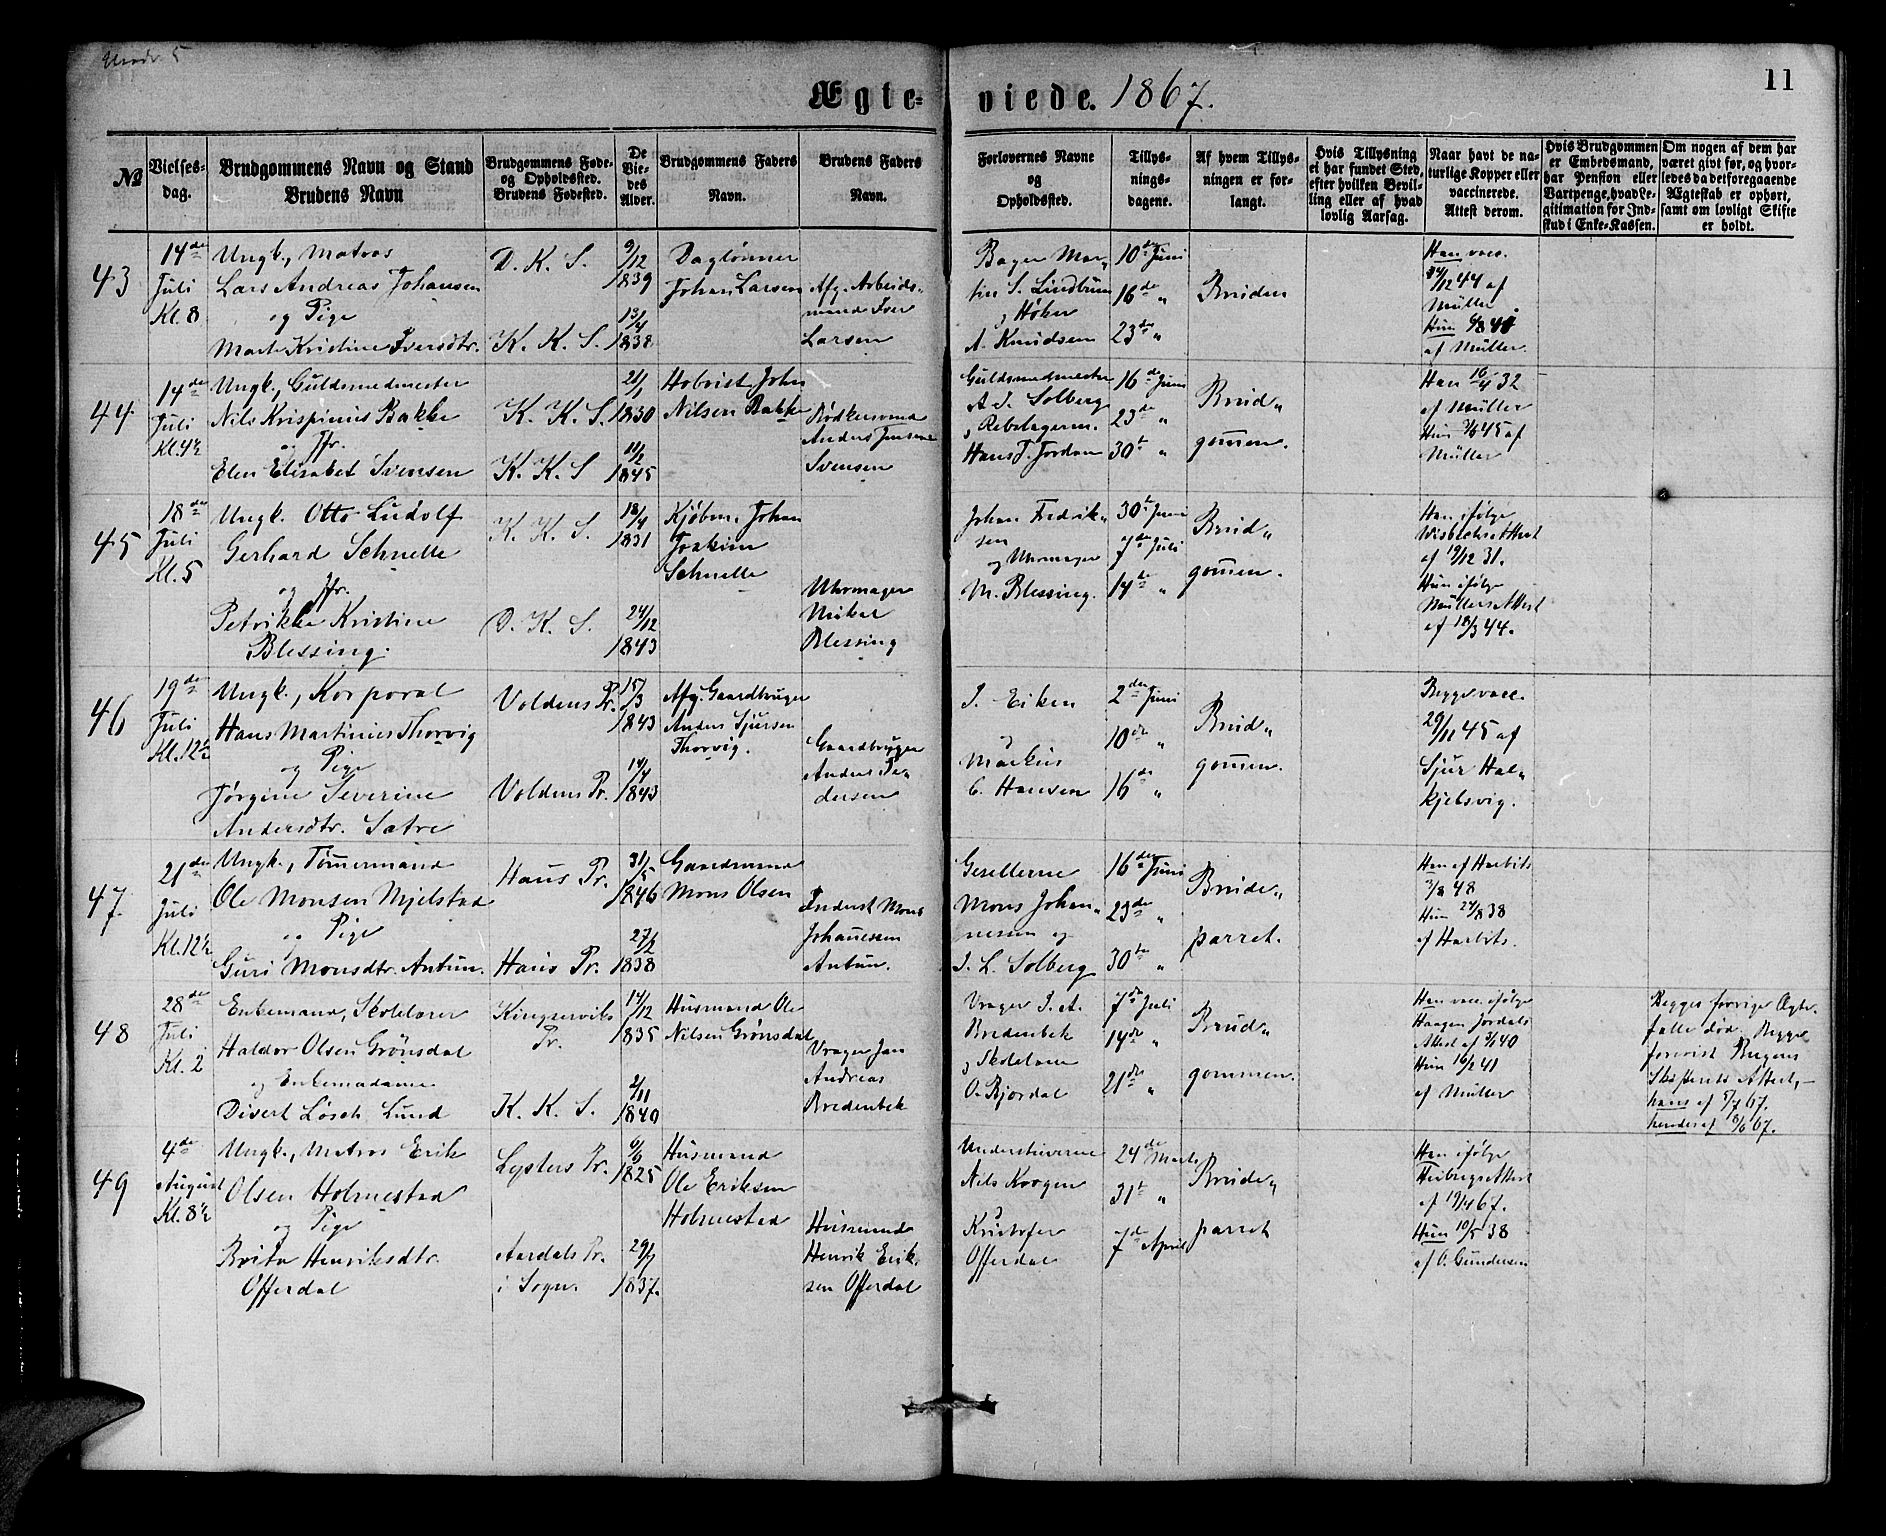 Ægte-
viede. 1867.
11
№
Vielses-
dag.
Brudgommens Navn og Stand
Brudens Navn
Brudgommens Føde-
og Opholdssted.
Brudens Fødested.
De
Vie-
des
Alder.
Brudgommens Faders
Navn.
Brudens Faders
Navn.
Forlovernes Navne
og
Opholdssted.
Tillys-
nings-
dagene.
Af hvem Tillys-
ningen er for-
langt.
Hvis Tillysning
ei har fundet Sted,
efter hvilken Bevil-
ling eller af hvad
lovlig Aarsag.
Naar havt de na-
turlige Kopper eller
vaccinerede.
Attest derom.
Hvis Brudgommen
er Embedsmand,
har Pension eller
Vartpenge, hvad Le-
gitimation for Ind-
skud i Enke-Kassen.
Om nogen af dem har
været givt før, og hvor-
ledes da det foregaaende
Ægteskab er ophørt,
samt om lovligt Skifte
er holdt.
43
14de
Juli
Kl. 8
Ungk., Matros
Lars Andreas Johansen
og Pige
Marte Kristine Iversdtr.
D. K. S.
K. K. S.
9/12
1839
13/4
1838
Daglønner
Johan Larsen
Afg. Arbeids-
mand Iver
Larsen
Bager Mar-
tin S. Lindbrun
og Høker
A. Knudsen
10de Juni
16de "
23de "
Bruden
Han vacc.
44 af
Müller.
Hun
af Müller.
44
14de
Juli
Kl. 4½
Ungk., Guldsmedmester
Nils Krispinus Bakke
og Jfr.
Elen Elisabet Svensen
K. K. S.
K. K. S
21/1
1830
11/2
1845
John
Nilsen Bakke
Bødkersvend
Anders Jensen
Svensen
Guldsmedmester
A. S. Solberg
og Rebslagerm.
Hans J. Jordan
16de Juni
23de "
30te "
Brud-
gomen.
Han 16/4 32
af Müller
Hun 45 af
Müller
45
18de
Juli
Kl. 5
Ungk. Otto Ludolf
Gerhard Schnelle
og Jfr.
Petrikke Kristine
Blessing.
K. K. S.
D. K. S.
18/4
1831
24/12
1843
Kjøbm. Johan
Joakim
Schnelle
Uhrmager
Mikal
Blessing
Johan Fredrik-
sen
og Uhrmager
M. Blessing.
30te Juni
7de Juli
14de "
Brud-
gomen.
Han ifølge
Wisbechs Attest
af 19/12 31.
Hun ifølge
Müllers Attest
af 18/3 44.
46
19de
Juli
Kl. 12½
Ungk., Korporal
Hans Martinus Thorvig
og Pige
Jørgine Severine
Andersdtr. Sætre
Voldens Pr.
Voldens Pr.
15/3
1843
14/4
1843
Afg. Gaardbruger
Anders Sjursen
Thorvig.
Gaardbruger
Anders Pe-
dersen
J. Eiken
og
Markus
C. Hansen
2den Juni
10de "
16de "
Brud-
gomen.
Begge vacc.
29/11 45 af
Sjur Hal-
kjelsvig.
47
21de
Juli
Kl. 12½
Ungk., Tømermand
Ole Monsen Mjelstad
og Pige
Guri Monsdtr. Antun.
Haus Pr.
Haus Pr.
31/5
1846
27/2
1838
Gaardmand
Mons Olsen
Inderst Mons
Johanessen
Antun.
Gesellerne
Mons Johan-
nessen og
J. L. Solberg
16de Juni
23de "
30te "
Brude-
parret.
Han af Harbits
3/8 48
Hun 24/8 38
af Harbits.
48
28de
Juli
Kl. 2
Enkemand, Skolelærer
Haldor Olsen Grønsdal
og Enkemadame
Divert Løsch Lund
Kingservik
Pr.
K. K. S.
17/12
1835
2/11
1840
Husmand Ole
Nilsen Grønsdal
Vrager Jan
Andreas
Bredenbek
Vrager J. A.
Bredenbek
og Skolelærer
O. Bjørdal
7de Juli
14de "
21de "
Brud-
gommen.
Han vacc. ifølge
Haagen Jordals
Attest af 40
Hun 16/2 41
af Müller
Begges forrige Ægte-
fælle død. Begge
forevist Byens
Skifterets Attest,-
hans af 5/7 67.
hendes af 8/6 67.
49
4de
August
Kl. 8½
Ungk., Matros Erik
Olsen Holmestad
og Pige
Brita Henriksdtr.
Offerdal
Lysters Pr.
Aardals Pr.
i Sogn.
6/6
1825
29/7
1837.
Husmand
Ole Eriksen
Holmestad
Husmand
Henrik Erik-
sen Offerdal
Understuverne
Nils Korgen
og
Kristofer
Offerdal
24de Marts
31te "
7de April
Brude-
parret
Han ifølge
Heibergs Attest
af 19/4 67.
Hun 10/5 38
af O. Gundersen